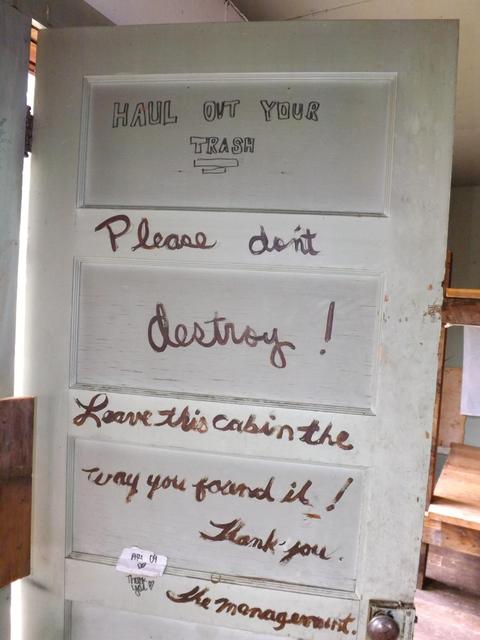 HAUL OUT YOUR
TRASH
Please don't
destroy!
Leave this cabin the
way you found it!
Thank-you.
Thank
you
The management.